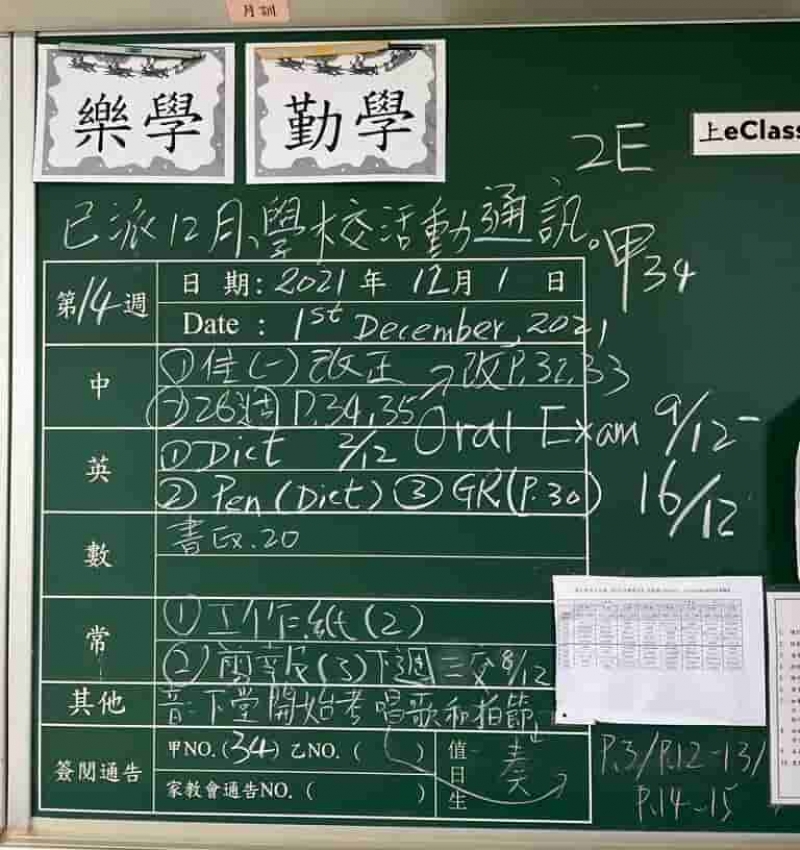 月訓
樂學
勤學
2E
上eClass
已派12月學校活動通訊。
甲34
第14週
日期: 2021年12月1日
Date : 1st December, 2021
中
①佳(一)改正 →改P.32,33
②26週 P.34,35
Oral Exam 9/12-
16/12
英
①Dict 2/12
②Pen(Dict) ③GR(P.30)
數
書Ex.20
常
①工作紙(2)
②剪報(3)下週三交8/12
其他
音:下堂開始考唱歌和拍節奏
簽閱通告
甲NO.(34) 乙NO.( )
家教會通告NO.( )
值日生
P.3/P.12-13/
P.14-15